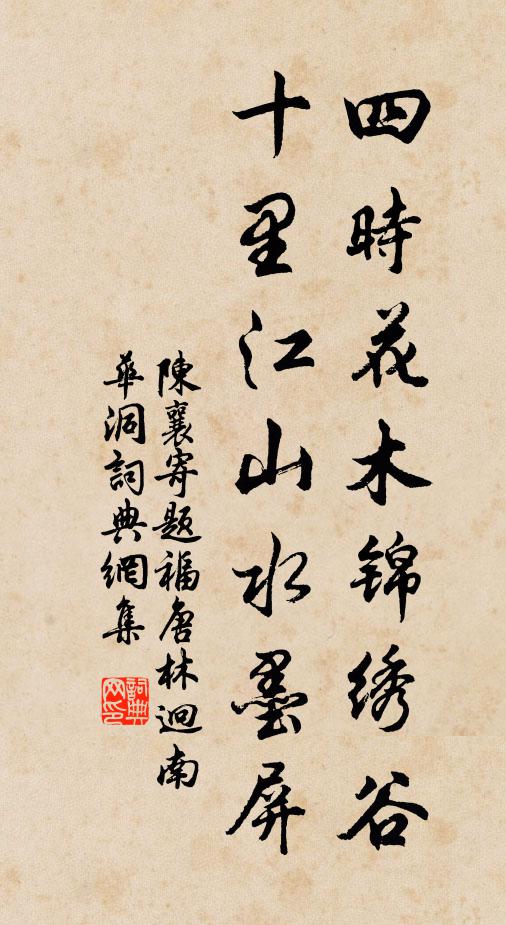 四時花木锦绣谷
十里江山水墨屏
陳襄寄题福唐林迥南
華洞詞典網集
詞典
网印